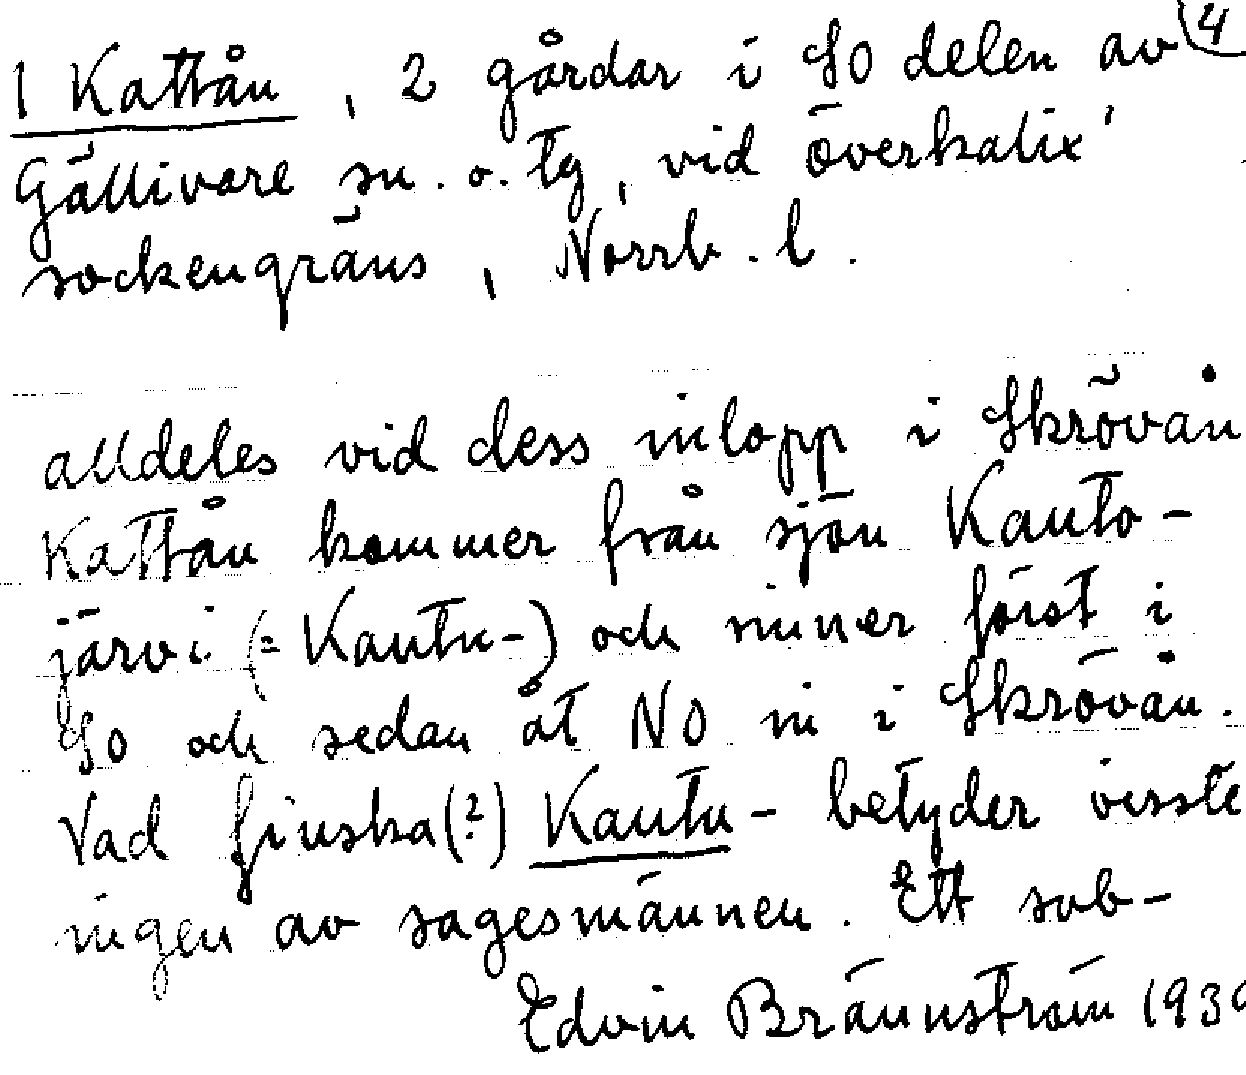 1 Kattån, 2 gårdar i SO delen av (4
Gällivare sn. o. tg, vid Överkalix'
sockengräns, Norrb. l.
alldeles vid dess inlopp i Skrövån
Kattån kommer från sjön Kauto-
järvi (= Kautu-) och rinner först i
SO och sedan åt NO in i Skrövån.
Vad finska(?) Kautu- betyder visste
ingen av sagesmännen. Ett sub-
Edvin Brännström 1939